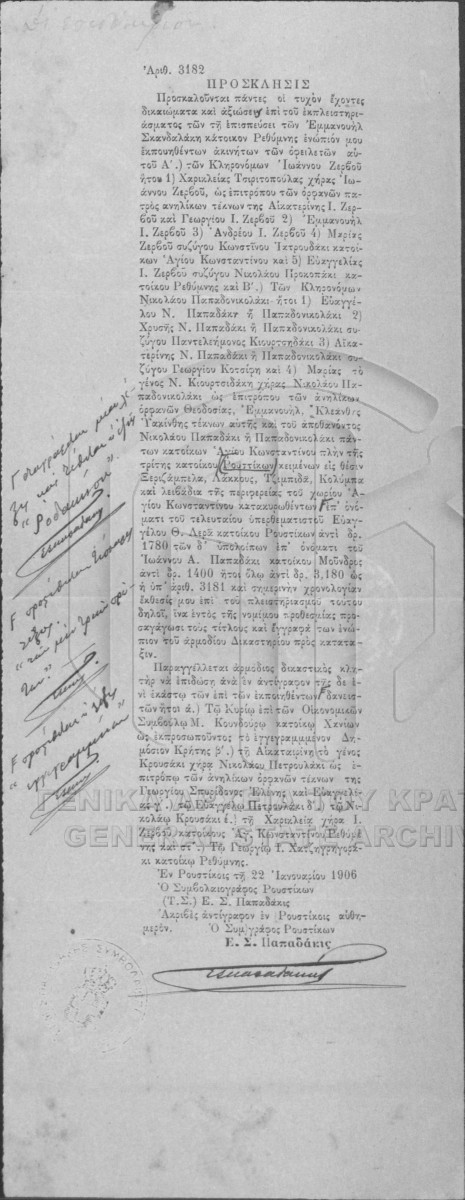 Ἀριθ. 3182
ΠΡΟΣΚΛΗΣΙΣ
Προσκαλοῦνται πάντες οἱ τυχὸν ἔχοντες
δικαιώματα καὶ ἀξιώσεις ἐπὶ τοῦ ἐκπλειστηρι-
άσματος τῶν τῇ ἐπισπεύσει τῶν Ἐμμανουὴλ
Σκανδαλάκη κάτοικον Ρεθύμνης ἐνώπιόν μου
ἐκποιηθέντων ἀκινήτων τῶν ὀφειλετῶν αὐ-
τοῦ Α΄.) τῶν Κληρονόμων Ἰωάννου Ζερβοῦ
ἤτοι 1) Χαρικλείας Τσιριτοπούλας χήρας Ἰω-
άννου Ζερβοῦ, ὡς ἐπιτρόπου τῶν ὀρφανῶν πα-
τρὸς ἀνηλίκων τέκνων της Αἰκατερίνης Ι. Ζερ-
βοῦ καὶ Γεωργίου Ι. Ζερβοῦ 2) Ἐμμανουὴλ
Ι. Ζερβοῦ 3) Ἀνδρέου Ι. Ζερβοῦ 4) Μαρίας
Ζερβοῦ συζύγου Κωνσ)τίνου Ἰατρουδάκι κατοί-
κων Ἁγίου Κωνσταντίνου καὶ 5) Εὐαγγελίας
Ι. Ζερβοῦ συζύγου Νικολάου Προκοπάκι κα-
τοίκου Ρεθύμνης καὶ Β΄.) Τῶν Κληρονόμων
Νικολάου Παπαδονικολάκι ἤτοι 1) Εὐαγγέ-
λου Ν. Παπαδάκι ἢ Παπαδονικολάκι 2)
Χρυσῆς Ν. Παπαδάκι ἢ Παπαδονικολάκι συ-
ζύγου Παντελεήμονος Κιουρτσηδάκι 3) Αἰκα-
τερίνης Ν. Παπαδάκι ἢ Παπαδονικολάκι συ-
ζύγου Γεωργίου Κοτσίρη καὶ 4) Μαρίας τὸ
γένος Ν. Κιουρτσιδάκη χήρας Νικολάου Πα-
παδονικολάκι ὡς ἐπιτρόπου τῶν ἀνηλίκων
ὀρφανῶν Θεοδοσίας, Ἐμμανουὴλ, Κλεάνθης
Ὑακίνθης τέκνων αὐτῆς καὶ τοῦ ἀποθανόντος
Νικολάου Παπαδάκι ἢ Παπαδονικολάκι πάν-
των κατοίκων Ἁγίου Κωνσταντίνου πλὴν τῆς
τρίτης κατοίκου Ρουστίκων κειμένων εἰς θέσιν
Ξεριζάμπελα, Λάκκους, Τζεμπιδά, Κολύμπα
καὶ λειβάδια τῆς περιφερείας τοῦ χωρίου Ἁ-
γίου Κωνσταντίνου κατακυρωθέντων ἐπ' ὀνό-
ματι τοῦ τελευταίου ὑπερθεματιστοῦ Εὐαγ-
γέλου Θ. Δερᾶ κατοίκου Ρουστίκων ἀντὶ δρ.
1780 τῶν δ' ὑπολοίπων ἐπ' ὀνόματι τοῦ
Ἰωάννου Α. Παπαδάκι κατοίκου Μούνδρες
ἀντὶ δρ. 1400 ἤτοι ὅλῳ ἀντὶ δρ. 3,180 ὡς
ἡ ὑπ' ἀριθ. 3181 καὶ σημερινὴν χρονολογίαν
ἔκθεσίς μου ἐπὶ τοῦ πλειστηριασμοῦ τούτου
δηλοῖ, ἵνα ἐντὸς τῆς νομίμου προθεσμίας προ-
σαγάγωσι τοὺς τίτλους καὶ ἔγγραφά των ἐνώ-
πιον τοῦ ἁρμοδίου Δικαστηρίου πρὸς κατατα-
ξιν.
Παραγγέλλεται ἁρμόδιος δικαστικὸς κλη-
τὴρ νὰ ἐπιδώσῃ ἀνὰ ἓν ἀντίγραφον τῆς δε ἑ-
νὶ ἑκάστῳ τῶν ἐπὶ τῶν ἐκποιηθέντων δανεισ-
τῶν ἤτοι ά.) Τῷ Κυρίῳ ἐπὶ τῶν Οἰκονομικῶν
Συμβούλῳ Μ. Κουνδούρῳ κατοίκῳ Χανίων
ὡς ἐκπροσωποῦντος τὸ ἐγγεγραμμμένον Δη-
μόσιον Κρήτης β΄.) τῇ Αἰκατερίνῃ τὸ γένος
Κρουσάκι χήρᾳ Νικολάου Πετρουλάκι ὡς ἐ-
πιτρόπῳ τῶν ἀνηλίκων ὀρφανῶν τέκνων τῆς
Γεωργίου Σπυρίδωνος Ἑλένης καὶ Εὐαγγελί-
ας γ΄.) τῷ Εὐαγγέλῳ Πετρουλάκι δ΄.) τῷ Νι-
κολάῳ Κρουσάκι ἑ.) τῇ Χαρικλείᾳ χήρᾳ Ι.
Ζερβοῦ κατοίκους Ἁγ. Κωνσταντίνου Ρεθύμ-
νης καὶ στ΄.) Τῷ Γεωργίῳ Ι. Χατζηγρηγορά-
κι κατοίκῳ Ρεθύμνης.
Ἐν Ρουστίκοις τῇ 22 Ἰανουαρίου 1906
Ὁ Συμβολαιογράφος Ρουστίκων
(Τ.Σ.) Ε. Σ. Παπαδάκις
Ἀκριβὲς ἀντίγραφον ἐν Ρουστίκοις αὐθη-
μερόν. Ὁ Συμ)γράφος Ρουστίκων
Ε. Σ. Παπαδάκις
"Ροδακινου"
"ἐγγεγραμμένον"